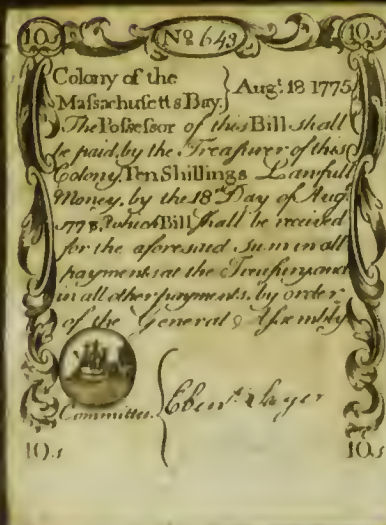 10s No 643 10s
Colony of the
Massachusetts Bay. } Augt. 18 1775
The Possessor of this Bill shall
be paid, by the Treasurer of this
Colony, Ten Shillings Lawfull
Money, by the 18th Day of Augt.
1778, which Bill shall be received
for the aforesaid Sum in all
payments at the Treasury and
in all other payments, by order
of the General Assembly
Committee. { Ebenr. Sayer
10.s 10.s